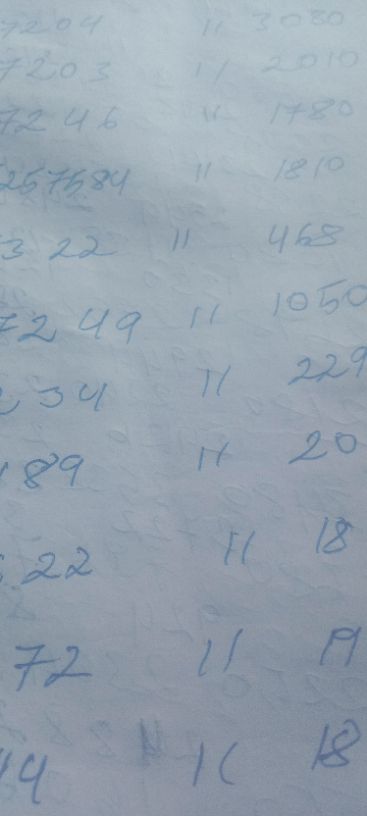 7204 " 3080
7203 " 2010
7246 " 1780
257584 " 1810
322 " 468
7249 " 1050
234 " 229
189 " 20
22 " 18
72 " 19
14 " 18